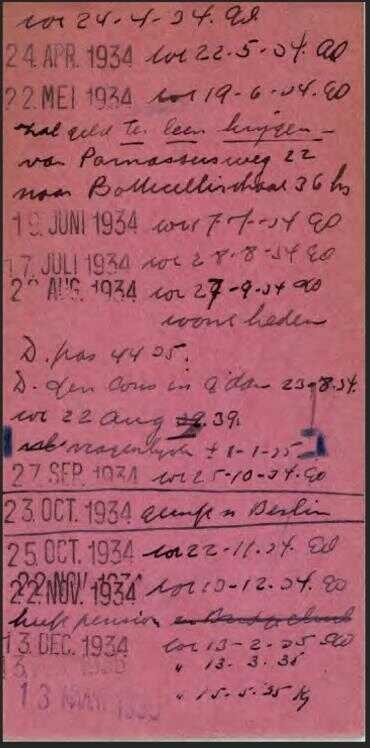 tot 24-4-34. ED
24 APR. 1934 tot 22-5-34. ED
22. MEI 1934 tot 19-6-34. ED
zal geld te leen krijgen -
van Parnassusweg 22
naar Botticellistraat 36 hs
19. JUNI 1934 tot 7-34 ED
17. JULI 1934 tot 28-8-34 ED
2 AUG. 1934 tot 27-9-34 ED
woont heden
D. pas 4435.
D. Gen Cons in A'dam 23-8-34.
tot 22 Aug 39.
± 1-1-35
27. SEP. 1934 tot 25-10-34. ED
23. OCT. 1934 Berlin
25. OCT. 1934 tot 22-11-34. ED
22. NOV. 1934 tot 13-12-34. ED
heeft pension
13. DEC. 1934 tot 13-2-35 ED
13. " 13.3.35
13 " 15.5.35